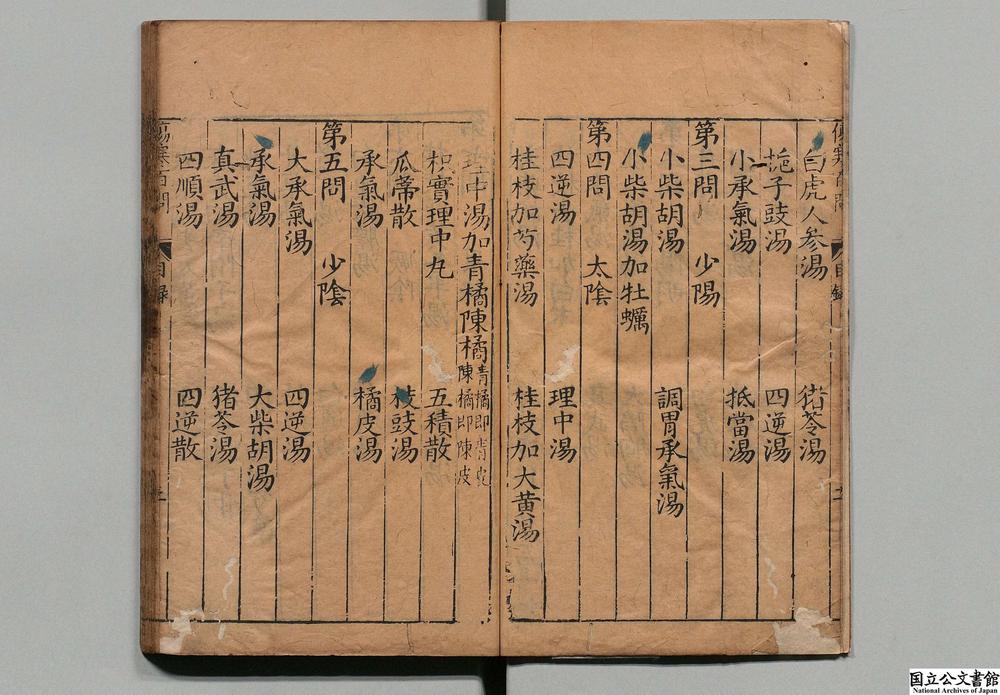 白虎人參湯 猪苓湯
梔子豉湯 四逆湯
小承氣湯 抵當湯
第三問 少陽
小柴胡湯 調胃承氣湯
小柴胡湯加牡蠣
第四問 太陰
四逆湯 理中湯
桂枝加芍藥湯 桂枝加大黄湯
理中湯加青橘陳橘 青橘即青皮 陳橘即陳皮
枳實理中丸 五積散
瓜蒂散 枝豉湯
承氣湯 橘皮湯
第五問 少陰
大承氣湯 四逆湯
承氣湯 大柴胡湯
真武湯 猪苓湯
四順湯 四逆散
傷寒百問 目録
国立公文書館
National Archives of Japan